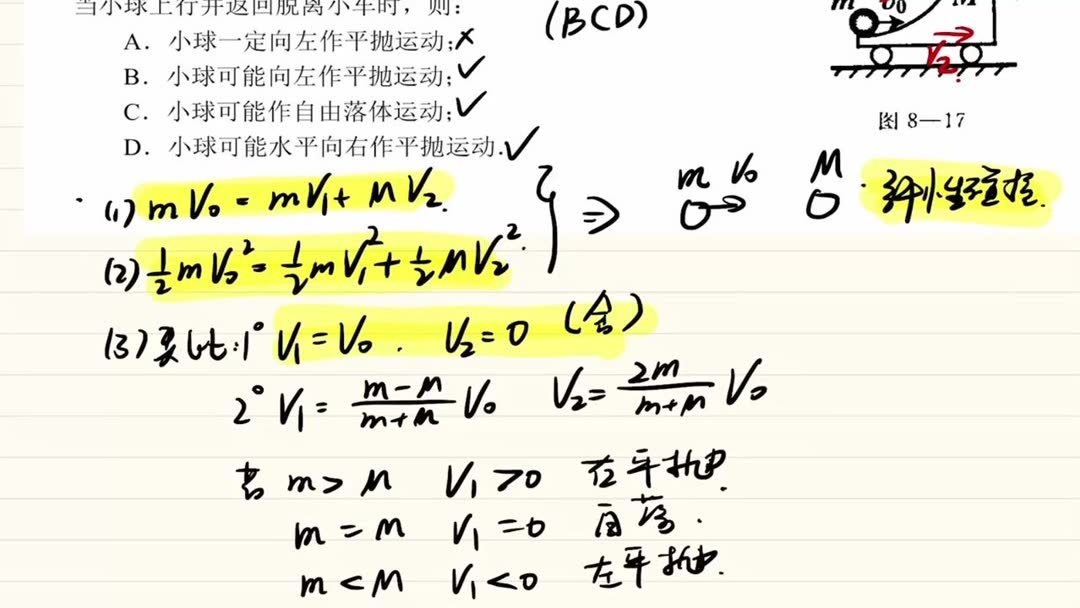 当小球上行并返回脱离小车时，则：
(BCD)
A．小球一定向左作平抛运动;✗
B．小球可能向左作平抛运动;✓
C．小球可能作自由落体运动;✓
D．小球可能水平向右作平抛运动.✓
m v₀ M
V₂
图 8—17
(1) mV₀ = mV₁ + MV₂.
(2) ½mV₀² = ½mV₁² + ½MV₂².
⇒ m V₀ M
(3) 1° V₁ = V₀. V₂ = 0 (舍)
2° V₁ = (m-M)/(m+M) V₀ V₂ = 2m/(m+M) V₀
若 m > M V₁ > 0 右平抛.
m = M V₁ = 0 自落.
m < M V₁ < 0 左平抛.